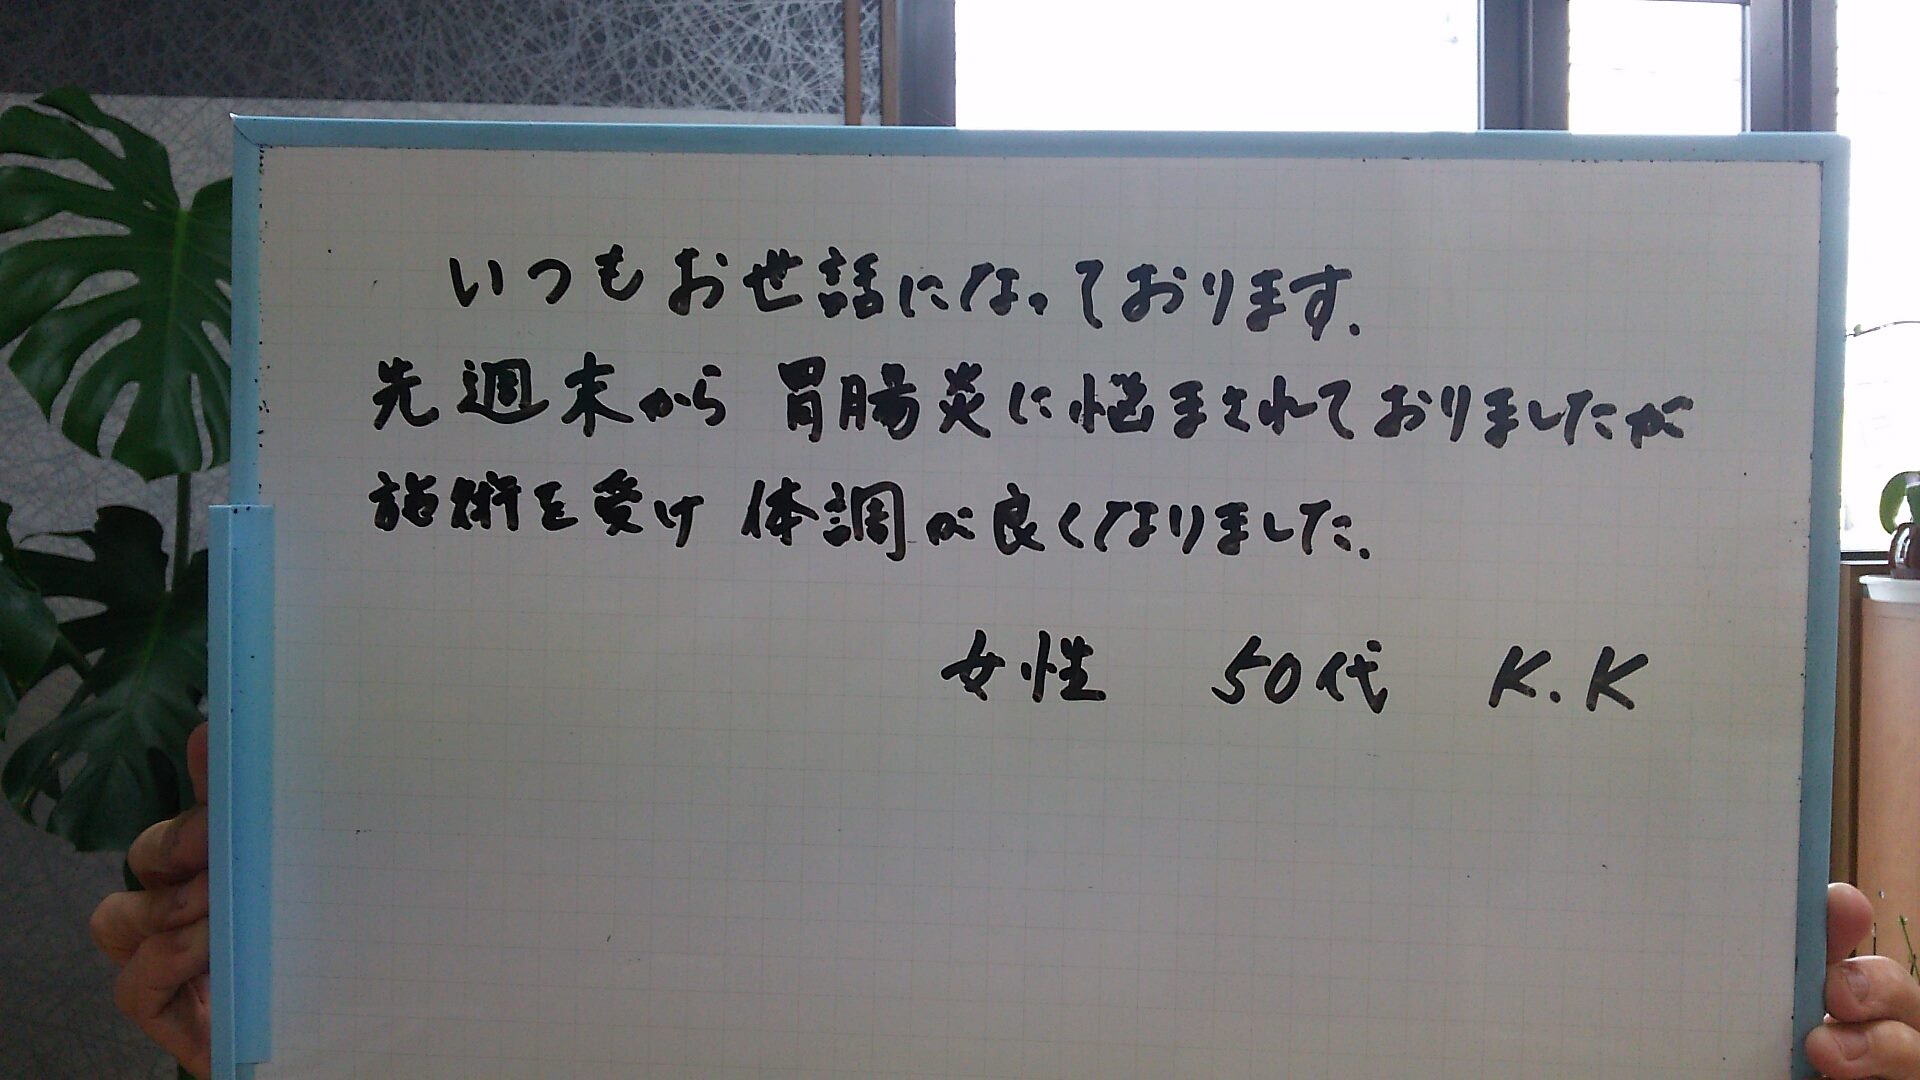 いつもお世話になっております.
先週末から 胃腸炎に悩まされておりましたが
施術を受け 体調が良くなりました.
女性 50代 K.K